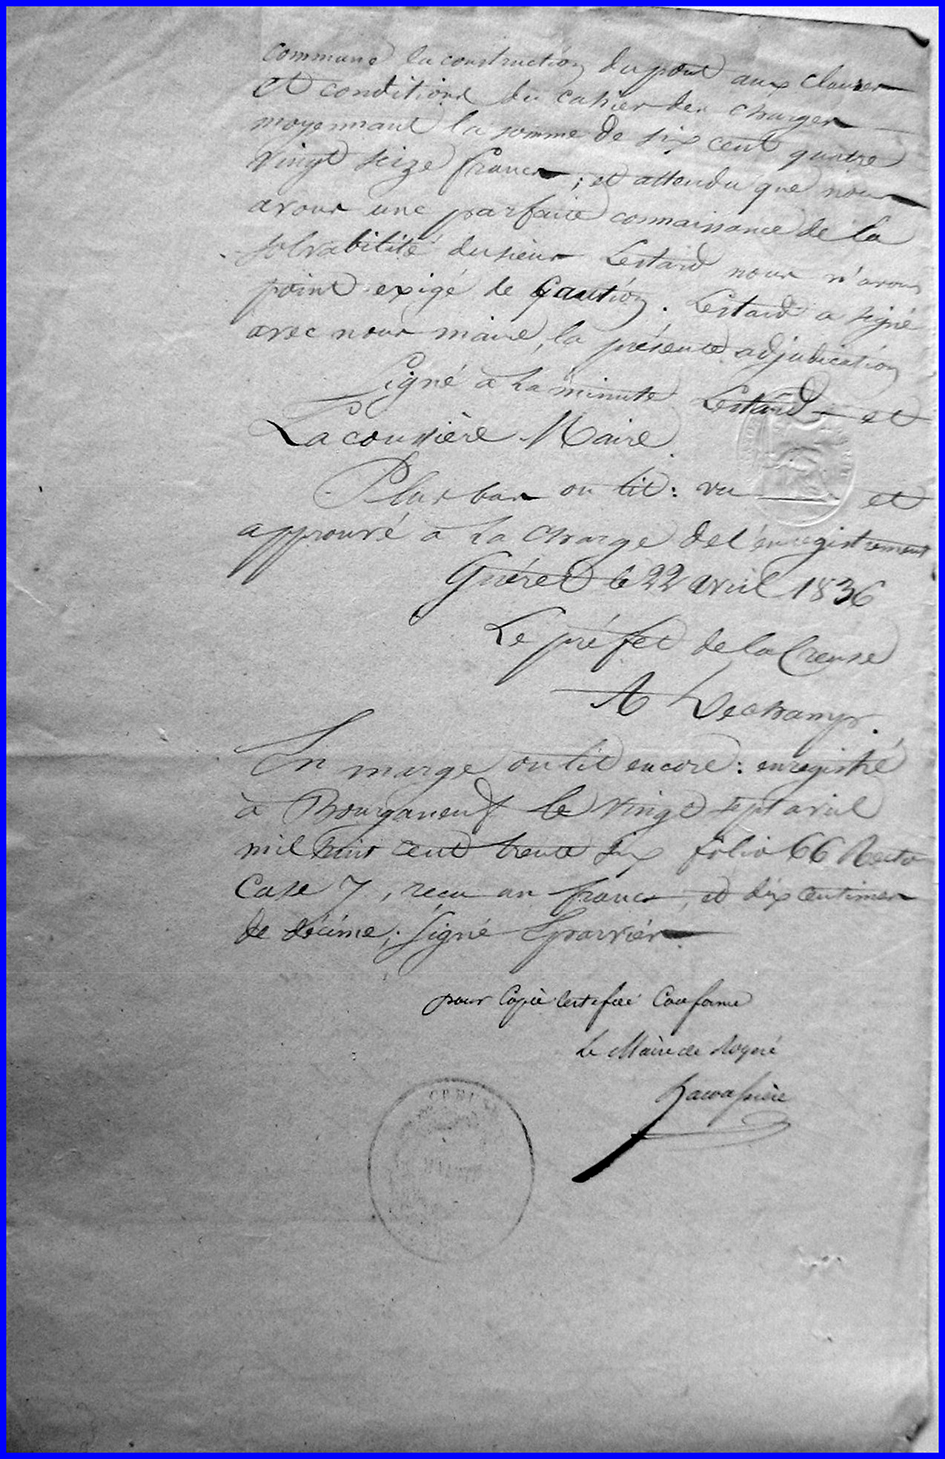 commune la construction du pont aux clauses
et conditions du cahier des charges
moyennant la somme de six cent quatre
vingt seize francs ; et attendu que nous
avons une parfaite connaissance de la
solvabilité du sieur Lestard nous n'avons
point exigé de Caution. Lestard a signé
avec nous maire, la présente adjudication
Signé à la minute Lestard et
Lacoussière Maire.
Plus bas on lit : vu et
approuvé à la charge de l'enregistrement
Guéret le 22 avril 1836
Le préfet de la Creuse
A Dechamps.
En marge on lit encore : enregistré
à Bourganeuf le vingt sept avril
mil huit cent trente six folio 66 Recto
Case 7, recu un franc, et dix centimes
de décime, Signé
pour Copie Certifiée Conforme
Le Maire de Royere
Lacoussière